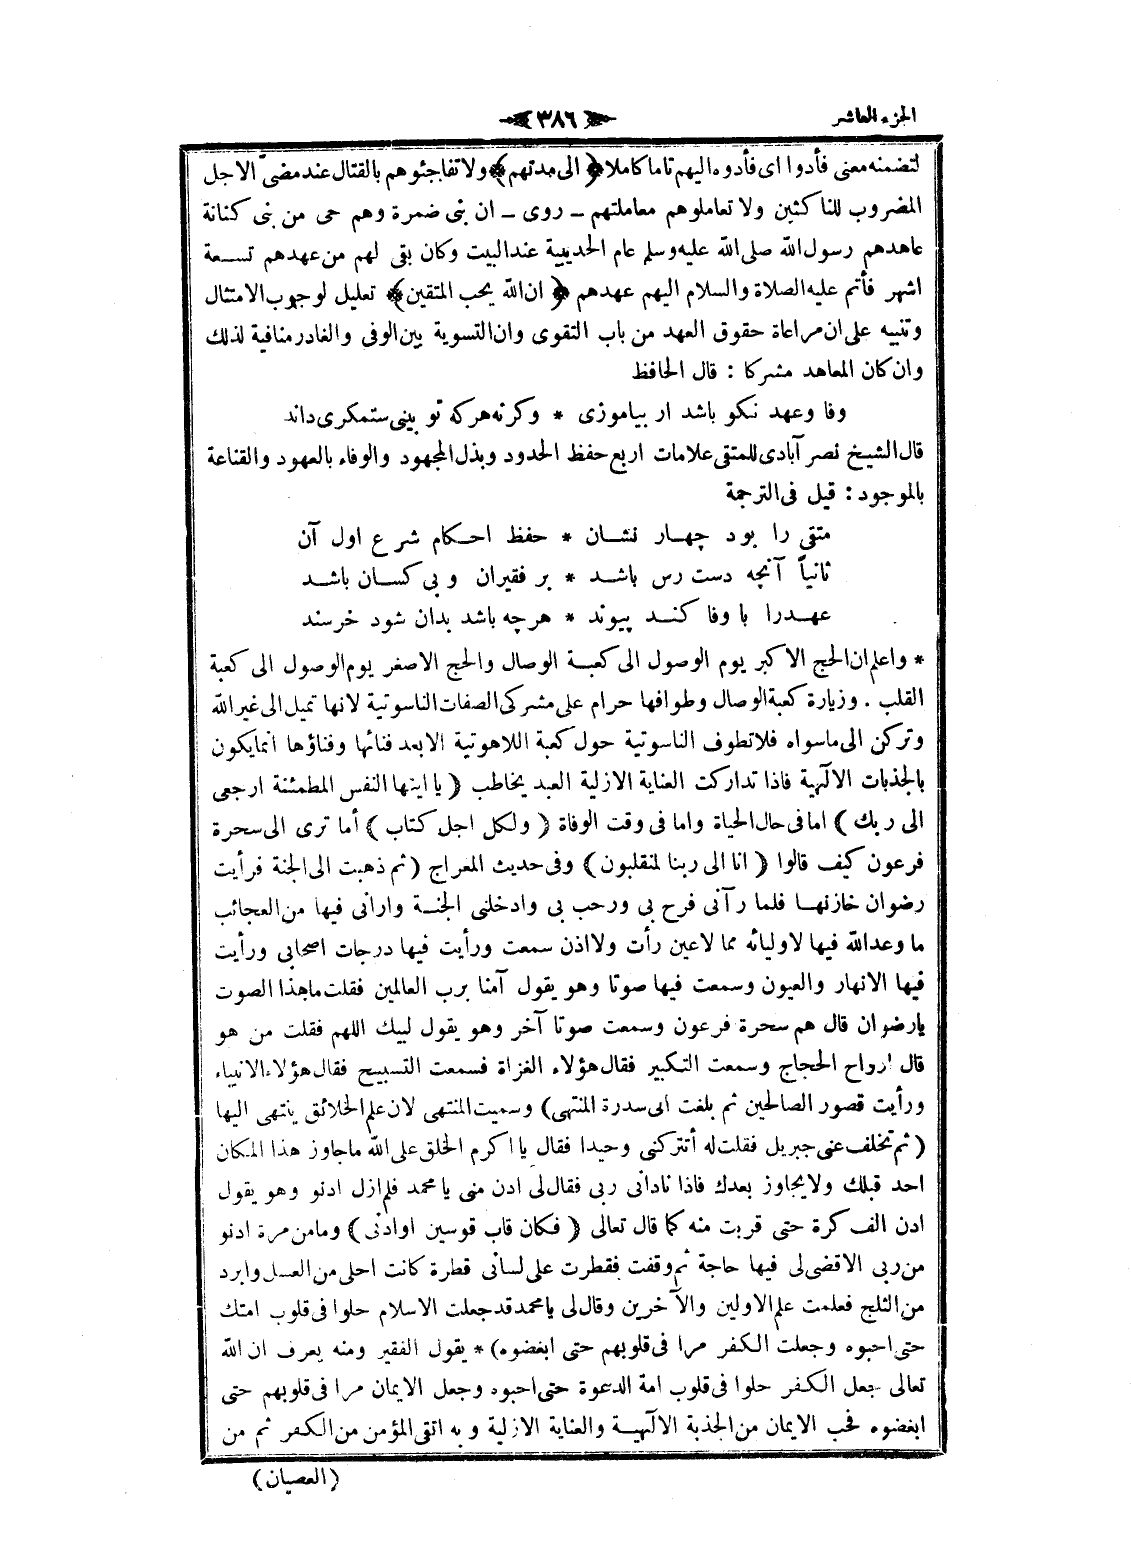 الجزء العاشر
٣٨٦
لتضمنه معنى فأدوا اى فأدوه اليهم تاما كاملا ﴿ الى مدتهم ﴾ ولا تفاجئوهم بالقتال عند مضىّ الاجل
المضروب للناكثين ولا تعاملوهم معاملتهم ــ روى ــ ان بنى ضمرة وهم حى من بنى كنانة
عاهدهم رسول الله صلى الله عليه وسلم عام الحديبية عند البيت وكان بقى لهم من عهدهم تسعة
اشهر فأتم عليه الصلاة والسلام اليهم عهدهم ﴿ ان الله يحب المتقين ﴾ تعليل لوجوب الامتثال
وتنبيه على ان مراعاة حقوق العهد من باب التقوى وان التسوية بين الوفى والغادر منافية لذلك
وان كان المعاهد مشركا : قال الحافظ
وفا وعهد نكو باشد ار بياموزى * وكرنه هركه تو بينى ستمكرى داند
قال الشيخ نصر آبادى للمتقى علامات اربع حفظ الحدود وبذل المجهود والوفاء بالعهود والقناعة
بالموجود : قيل فى الترجمة
متقى را بود چهار نشان * حفظ احكام شرع اول آن
ثانياً آنچه دست رس باشد * بر فقيران وبى كسان باشد
عهدرا با وفا كند پيوند * هرچه باشد بدان شود خرسند
* واعلم ان الحج الاكبر يوم الوصول الى كعبة الوصال والحج الاصغر يوم الوصول الى كعبة
القلب . وزيارة كعبة الوصال وطوافها حرام على مشركى الصفات الناسوتية لانها تميل الى غير الله
وتركن الى ماسواه فلا تطوف الناسوتية حول كعبة اللاهوتية الا بعد فنائها وفناؤها انما يكون
بالجذبات الآلهية فاذا تداركت العناية الازلية العبد يخاطب ( يا ايتها النفس المطمئنة ارجعى
الى ربك ) اما فى حال الحياة واما فى وقت الوفاة ( ولكل اجل كتاب ) أما ترى الى سحرة
فرعون كيف قالوا ( انا الى ربنا لمنقلبون ) وفى حديث المعراج ( ثم ذهبت الى الجنة فرأيت
رضوان خازنها فلما رآنى فرح بى ورحب بى وادخلنى الجنة وارانى فيها من العجائب
ما وعد الله فيها لاوليائه مما لاعين رأت ولا اذن سمعت ورأيت فيها درجات اصحابى ورأيت
فيها الانهار والعيون وسمعت فيها صوتا وهو يقول آمنا برب العالمين فقلت ماهذا الصوت
يارضوان قال هم سحرة فرعون وسمعت صوتا آخر وهو يقول لبيك اللهم فقلت من هو
قال ارواح الحجاج وسمعت التكبير فقال هؤلاء الغزاة فسمعت التسبيح فقال هؤلاء الانبياء
ورأيت قصور الصالحين ثم بلغت الى سدرة المنتهى ) وسميت المنتهى لان علم الخلائق ينتهى اليها
( ثم تخلف عنى جبريل فقلت له أتتركنى وحيدا فقال يا اكرم الخلق على الله ماجاوز هذا المكان
احد قبلك ولا يجاوز بعدك فاذا نادانى ربى فقال لى ادن منى يا محمد فلم ازل ادنو وهو يقول
ادن الف كرة حتى قربت منه كما قال تعالى ( فكان قاب قوسين او ادنى ) ومامن مرة ادنو
من ربى الاقضى لى فيها حاجة ثم وقفت فقطرت على لسانى قطرة كانت احلى من العسل وابرد
من الثلج فعلمت علم الاولين والآخرين وقال لى يا محمد قد جعلت الاسلام حلوا فى قلوب امتك
حتى احبوه وجعلت الكفر مرا فى قلوبهم حتى ابغضوه ) * يقول الفقير ومنه يعرف ان الله
تعالى جعل الكفر حلوا فى قلوب امة الدعوة حتى احبوه وجعل الايمان مرا فى قلوبهم حتى
ابغضوه فحب الايمان من الجذبة الآلهية والعناية الازلية وبه اتقى المؤمن من الكفر ثم من
( العصيان )